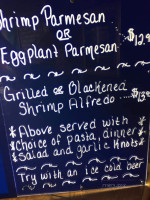 Shrimp Parmesan
OR
EggPlant Parmesan
Grilled or Blackened
Shrimp Alfredo
*Above served with
*choice of pasta, dinner*
*salad and garlic Knots*
Try with an ice cold beer